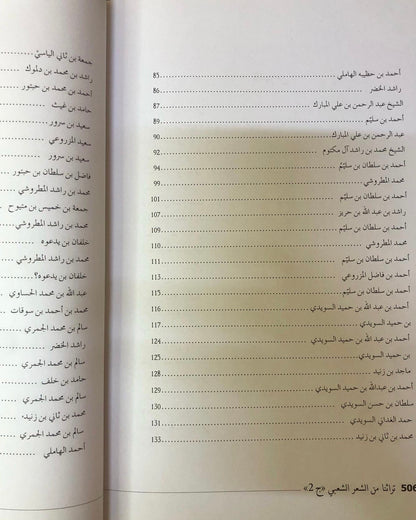 أحمد بن حظيبه الهاملي 85
راشد الخضر 86
الشيخ عبد الرحمن بن علي المبارك 87
أحمد بن سليّم 89
عبد الرحمن بن علي المبارك 90
الشيخ محمد بن راشد آل مكتوم 92
أحمد بن سلطان بن سليّم 94
محمد المطروشي 99
أحمد بن سلطان بن سليّم 101
راشد بن عبد الله بن حريز 107
أحمد بن سلطان بن سليّم 109
محمد المطروشي 110
أحمد بن سلطان بن سليّم 111
أحمد بن فاضل المزروعي 113
أحمد بن سلطان بن سليّم 115
أحمد بن عبد الله بن حميد السويدي 116
بن حميد السويدي 117
أحمد بن عبد الله بن حميد السويدي 124
بن حميد السويدي 125
ماجد بن زنيد 128
أحمد بن عبدالله بن حميد السويدي 129
سلطان بن حسن السويدي 130
حمد الغداني السويدي 131
محمد بن ثاني بن زنيد 133
506 تراثنا من الشعر الشعبي «ج 2»
جمعة بن ثاني الياسيّ
راشد بن محمد بن دلموك
أحمد بن محمد بن حبتور
حامد بن غيث
سعيد بن سرور
سعيد المزروعي
سعيد بن سرور
فاضل بن سلطان بن حبتور
محمد بن راشد المطروشي
جمعة بن خميس بن متيوح
محمد بن راشد المطروشي
خلفان بن يدعوه
محمد بن راشد المطروشي
خلفان بن يدعوه؟
عبد الله بن محمد الحساوي
محمد بن أحمد بن سوقات
سالم بن محمد الجمري
راشد الخضر
سالم بن محمد الجمري
حامد بن خلف
سالم بن محمد الجمري
محمد بن ثاني بن زنيد
سالم بن محمد الجمري
أحمد الهاملي